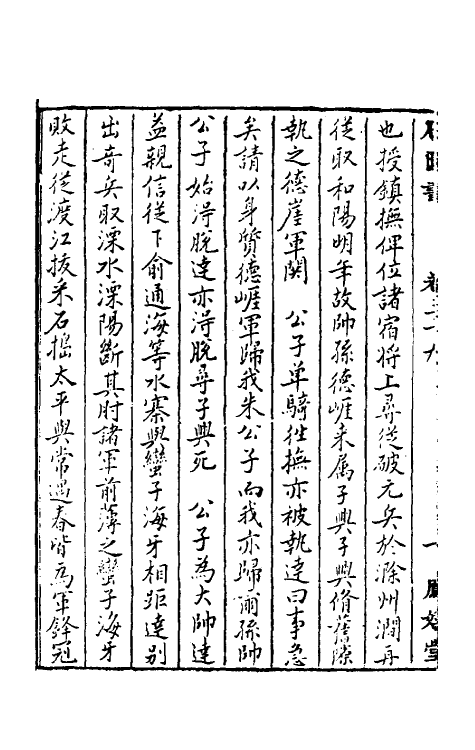 石匱書　卷　鳳嬉堂
也授鎮撫俾位諸宿將上尋從破元兵於滁州澗再
從取和陽明年故帥孫德崖來屬子興子興脩舊隙
執之德崖軍鬨　公子单騎徃撫亦被執達曰事急
矣請以身質德崕軍歸我朱公子而我亦歸爾孫帥
公子始淂脫達亦淂脫尋子興死　公子為大帥達
益親信從下俞通海等水寨與蠻子海牙相距達别
出奇兵取溧水溧陽斷其肘諸軍前薄之蠻子海牙
敗走從渡江拔采石搗太平與常遇春皆為軍鋒冠